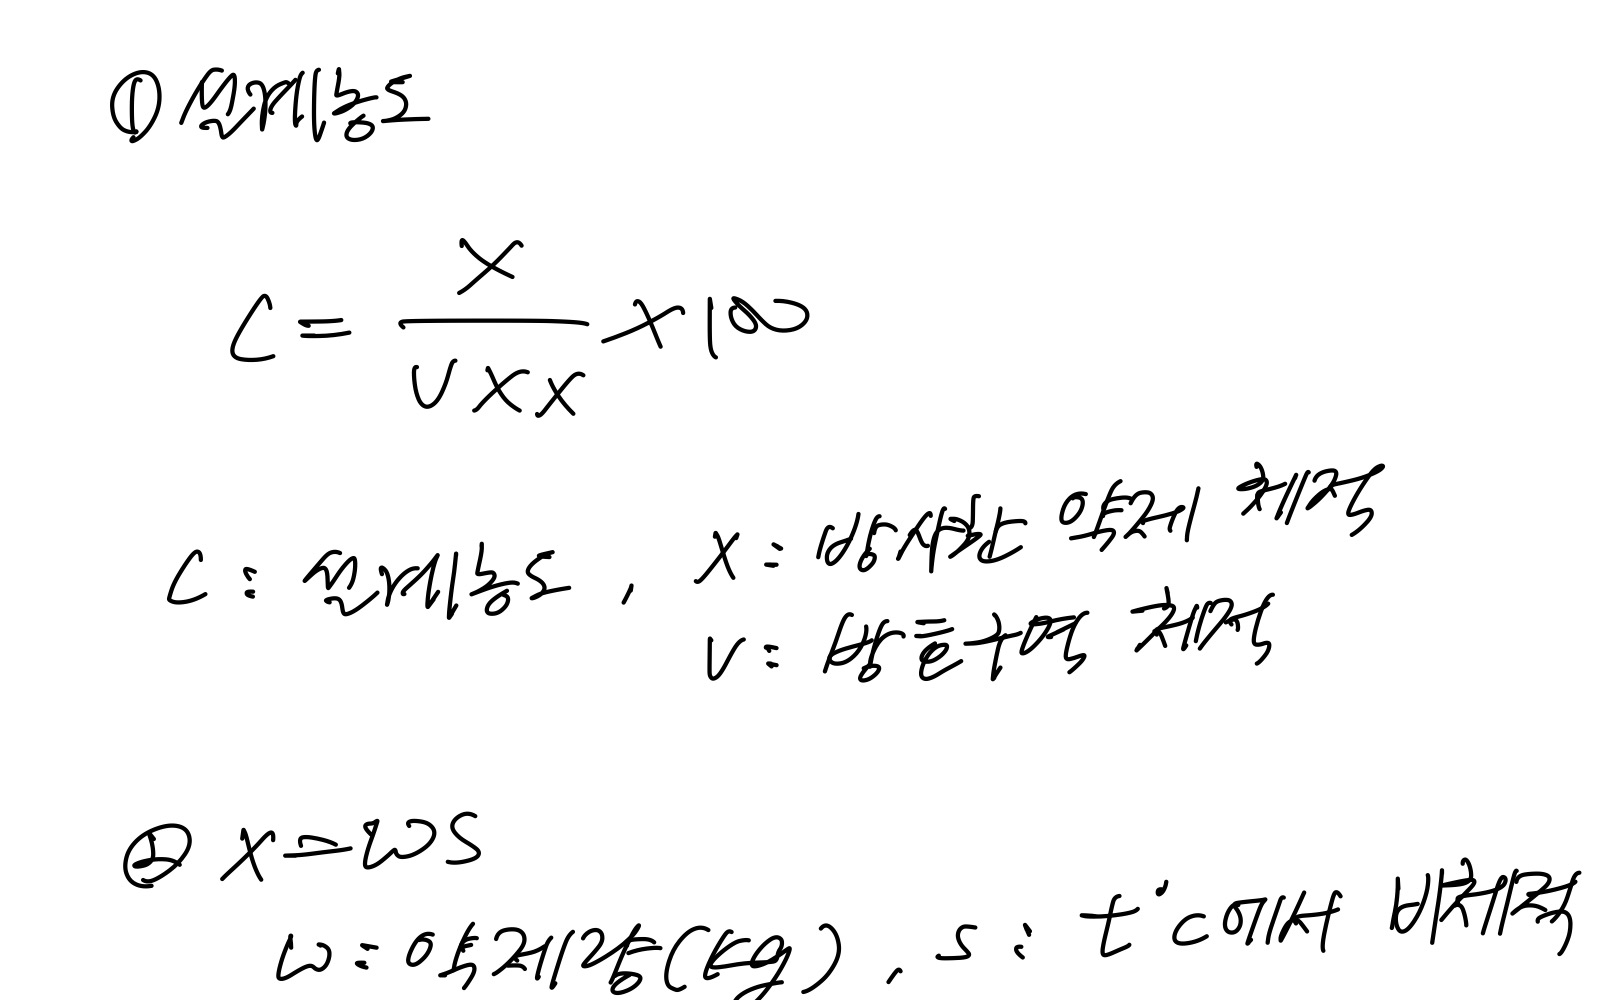 ① 설계농도
C = X / V X X X 100
C : 설계농도 , X : 방사한 약제 체적
V : 방호구역 체적
② X = WS
W : 약제량(kg) , S : t°C에서 비체적